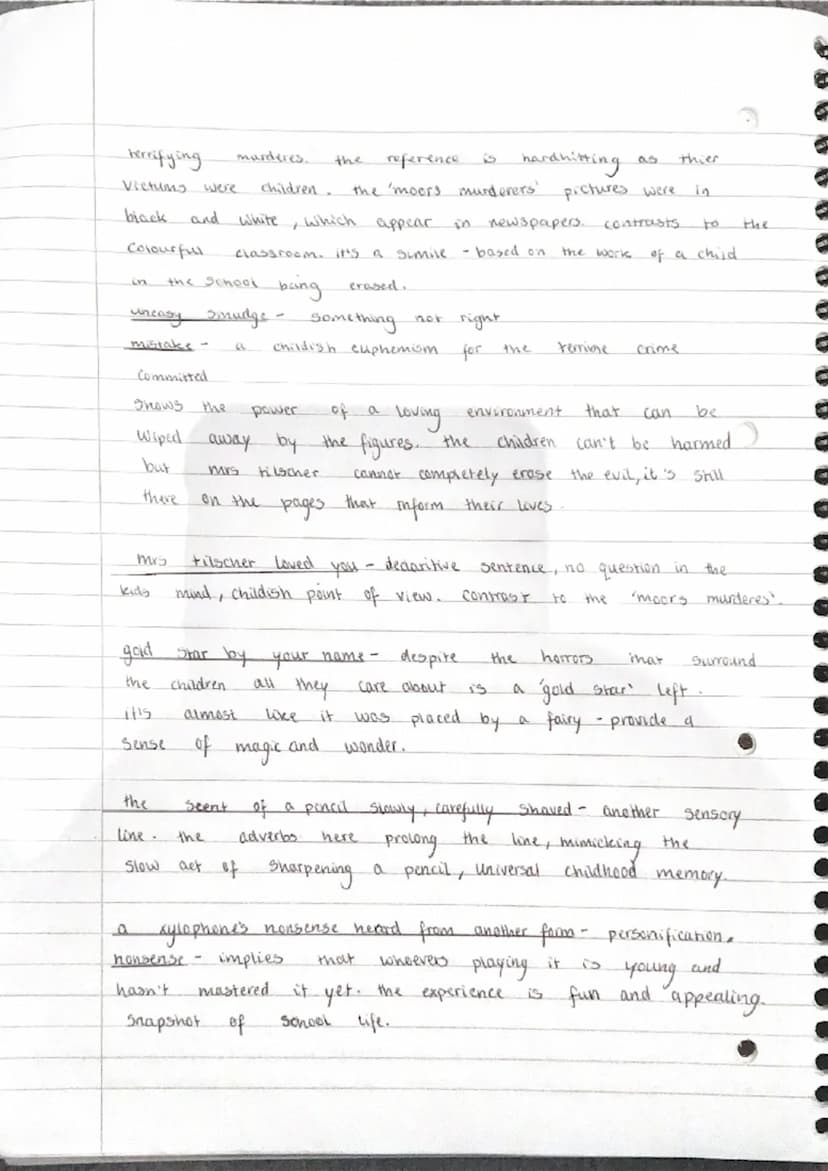 terrifying murderes. the reference is hardhitting as thier
victums were children. the 'moors murderers' pictures were in
black and white, which appear in newspapers. contrasts to the
colourful classroom. it's a simile - based on the work of a child
in the school being erased.
uneasy smudge - something not right
mistake - a childish euphemism for the terrible crime
committed
shows the power of a loving environment that can be
wiped away by the figures. the children can't be harmed
but mrs tilscher cannot completely erase the evil, it's still
there on the pages that inform their lives.
mrs tilscher loved you - declaritive sentence, no question in the
kids mind, childish point of view. contrast to the 'moors murderes'.
gold star by your name - despite the horrors that surround
the children all they care about is a 'gold star' left.
it's almost like it was placed by a fairy - provide a
sense of magic and wonder.
the scent of a pencil slowly, carefully shaved - another sensory
line. the adverbs here prolong the line, mimicking the
slow act of sharpening a pencil, universal childhood memory.
a xylophone's nonsense heard from another form - personification.
nonsense - implies that whoevers playing it is young and
hasn't mastered it yet. the experience is fun and appealing.
snapshot of school life.